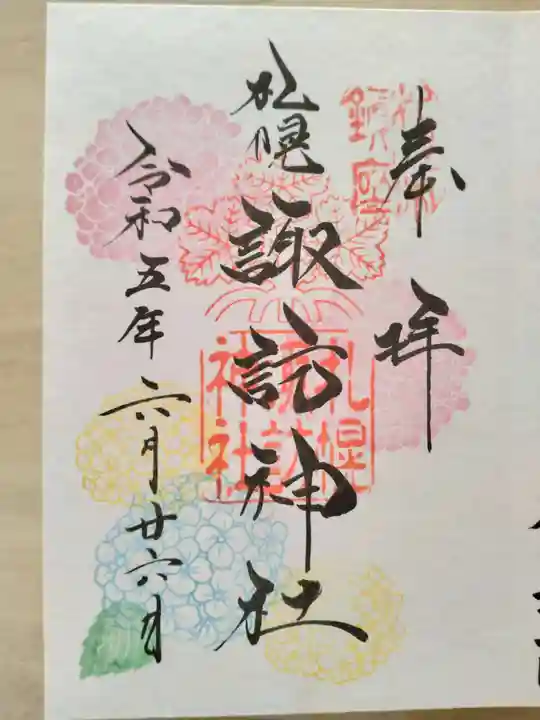 奉拝
札幌諏訪神社
令和五年六月廿六日
神徳
鎮座
札幌
諏訪
神社